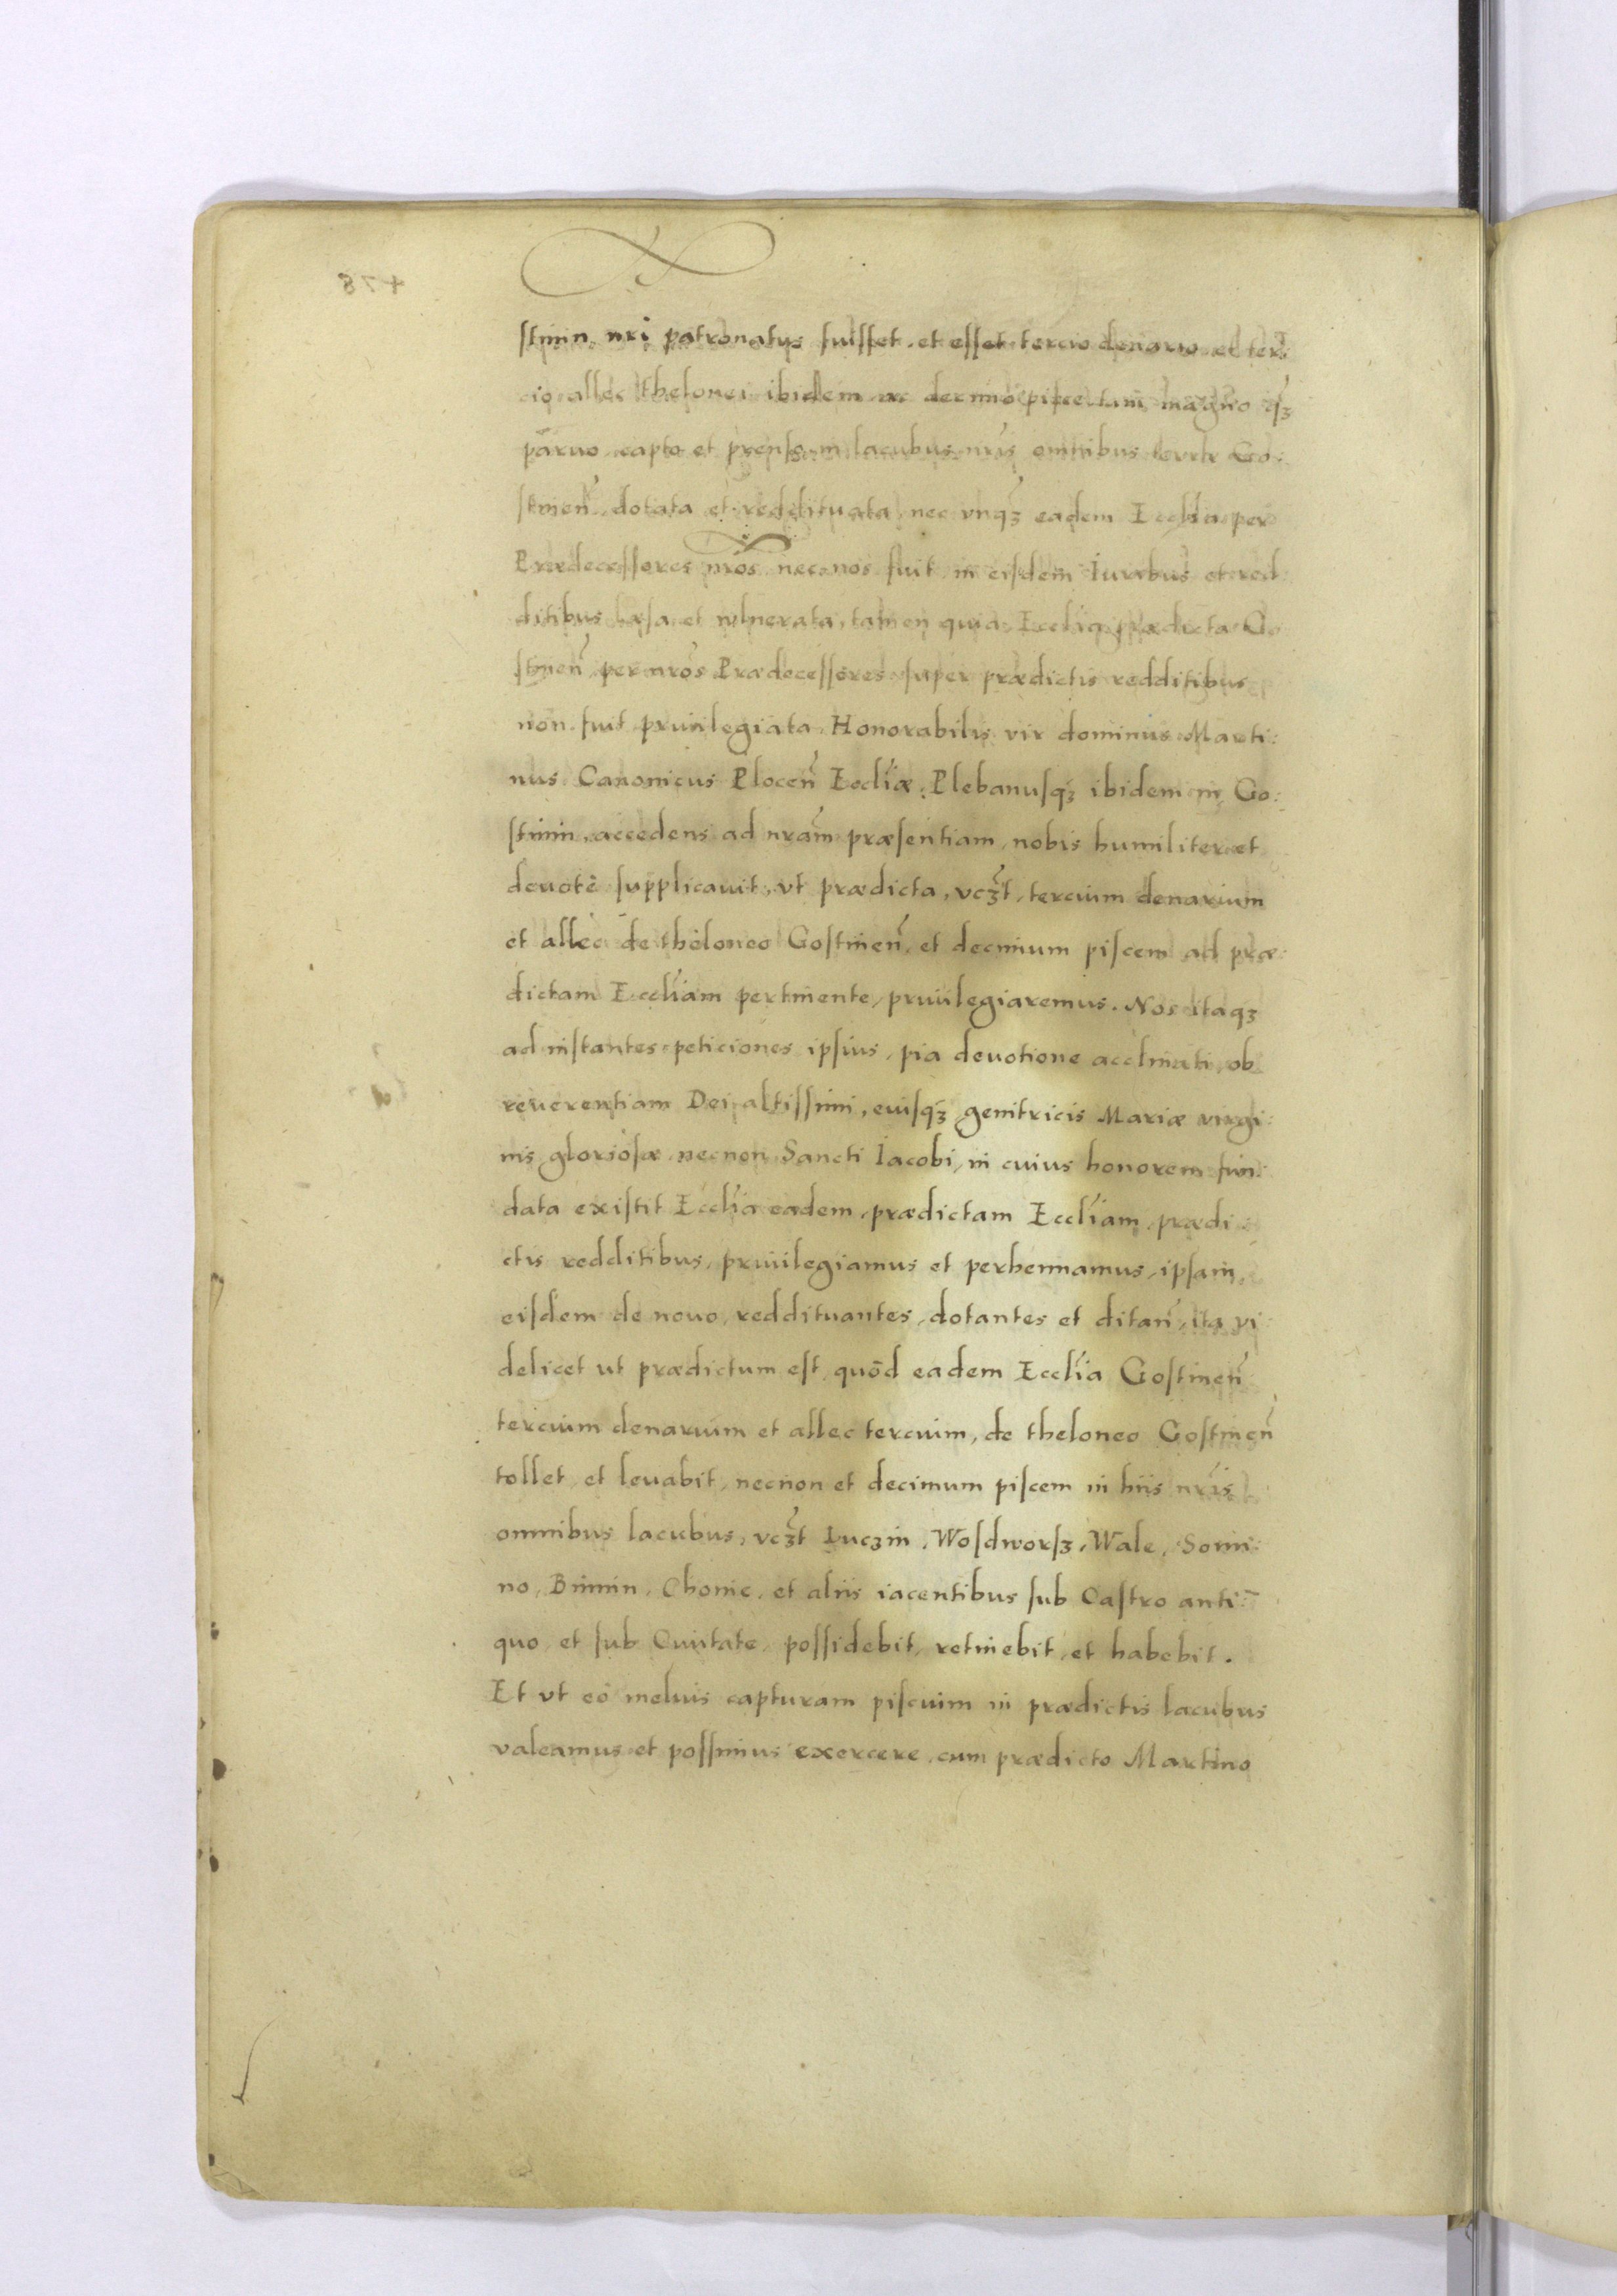 ſtinin, nri patronatus fuiſſet, et eſſet tercio denario et ter:
cio allec thelonei ibidem ac decimo piſce tam magno qꝫ
paruo capto et prenſo in lacubus nris omnibus Go:
ſtinen̄, dotata et reddituata, nec vnqꝫ eadem Eccl̄ia per
Prædeceſſores nrōs nec nos fuit in eiſdem Iuribus et red
ditibus læſa et vulnerata, tamen quia Eccl̄ia prædicta Go
ſtinen̄ per nrōs Prædeceſſores ſuper prædictis redditibus
non fuit priuilegiata, Honorabilis vir dominus Marti:
nus Canonicus Plocen̄ Eccl̄iæ, Plebanuſqꝫ ibidem in Go:
ſtinin, accedens ad nram̄ præſentiam, nobis humiliter et
deuotè ſupplicauit, vt prædicta, vcꝫt, tercium denarium
et allec de theloneo Goſtinen̄, et decimum piſcem ad præ:
dictam Eccl̄iam pertinente, priuilegiaremus. Nos itaqꝫ
ad inſtantes peticiones ipſius, pia deuotione acclinati, ob
reuerentiam Dei altiſſimi, euiſqꝫ genitricis Mariæ virgi:
nis glorioſæ necnon Sancti Iacobi, in cuius honorem fun:
data exiſtit Eccl̄ia eadem, prædictam Eccl̄iam, prædi:
ctis redditibus, priuilegiamus et perhennamus, ipſam,
eiſdem de nouo, reddituantes, dotantes et ditan̄, ita vi:
delicet ut prædictum eſt, quòd eadem Eccl̄ia Goſtinen̄
tercium denarium et allec tercium, de theloneo Goſtinen̄
tollet, et leuabit, necnon et decimum piſcem in hiis nrīs
omnibus lacubus, vcꝫt Luczin, Woſdworſꝫ, Wale, Somi:
no, Bimin, Chonie, et aliis iacentibus ſub Caſtro anti:
quo, et ſub Ciuitate, poſſidebit, retinebit, et habebit.
Et vt eò melius capturam piſcium in prædictis lacubus
valeamus et poſſimus exercere, cum prædicto Martino